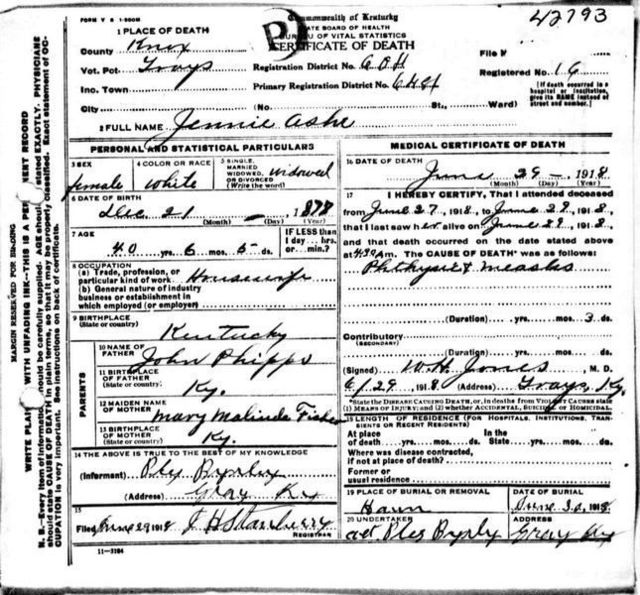 42793
FORM V S 1-500M
Commonwealth of Kentucky
STATE BOARD OF HEALTH
BUREAU OF VITAL STATISTICS
CERTIFICATE OF DEATH
1 PLACE OF DEATH
County Knox
Vot. Pct Grays
Registration District No.
File No
Primary Registration District No.
Registered No. 16
Inc. Town
City
(No.
St.,
Ward)
[If death occurred in a hospital or institution, give its NAME instead of street and number.]
2 FULL NAME Jennie Ashe
PERSONAL AND STATISTICAL PARTICULARS
3 SEX female
4 COLOR OR RACE White
5 SINGLE, MARRIED WIDOWED, OR DIVORCED (Write the word) widowed
6 DATE OF BIRTH
Dec 21 - 1878
(Month) (Year)
7 AGE
40 yrs. 6 mos. 5 ds.
IF LESS than 1 day ... hrs. or ... min.?
8 OCCUPATION
(a) Trade, profession, or particular kind of work Housewife
(b) General nature of industry business or establishment in which employed (or employer)
9 BIRTHPLACE
(State or country) Kentucky
PARENTS
10 NAME OF FATHER John Phipps
11 BIRTHPLACE OF FATHER (State or country) Ky.
12 MAIDEN NAME OF MOTHER Mary Malinda Fisher
13 BIRTHPLACE OF MOTHER (State or country) Ky.
14 THE ABOVE IS TRUE TO THE BEST OF MY KNOWLEDGE
(Informant) Ples Byrly
(Address) Gray Ky
15
Filed June 29 1918
REGISTRAR
11-3184
MEDICAL CERTIFICATE OF DEATH
16 DATE OF DEATH
June 29 - 1918
(Month) (Day) (Year)
17 I HEREBY CERTIFY, That I attended deceased
from June 27, 1918, to June 29, 1918,
that I last saw her alive on June 29, 1918,
and that death occurred on the date stated above
at M. The CAUSE OF DEATH* was as follows:
Phthysis & measles
(Duration) yrs. mos. 3 ds.
Contributory
(SECONDARY)
(Duration) yrs. mos. ds.
(Signed) W.H. Jones, M. D.
6/29, 1918 (Address) Grays, Ky.
*State the DISEASE CAUSING DEATH, or, in deaths from VIOLENT CAUSES state (1) MEANS OF INJURY; and (2) whether ACCIDENTAL, SUICIDAL or HOMICIDAL.
18 LENGTH OF RESIDENCE (FOR HOSPITALS, INSTITUTIONS, TRANSIENTS OR RECENT RESIDENTS)
At place of death yrs. mos. ds.
In the State yrs. mos. ds.
Where was disease contracted, if not at place of death?
Former or usual residence
19 PLACE OF BURIAL OR REMOVAL
DATE OF BURIAL
June 30, 1918
20 UNDERTAKER
Ples Byrly
ADDRESS
Gray Ky
MARGIN RESERVED FOR BINDING